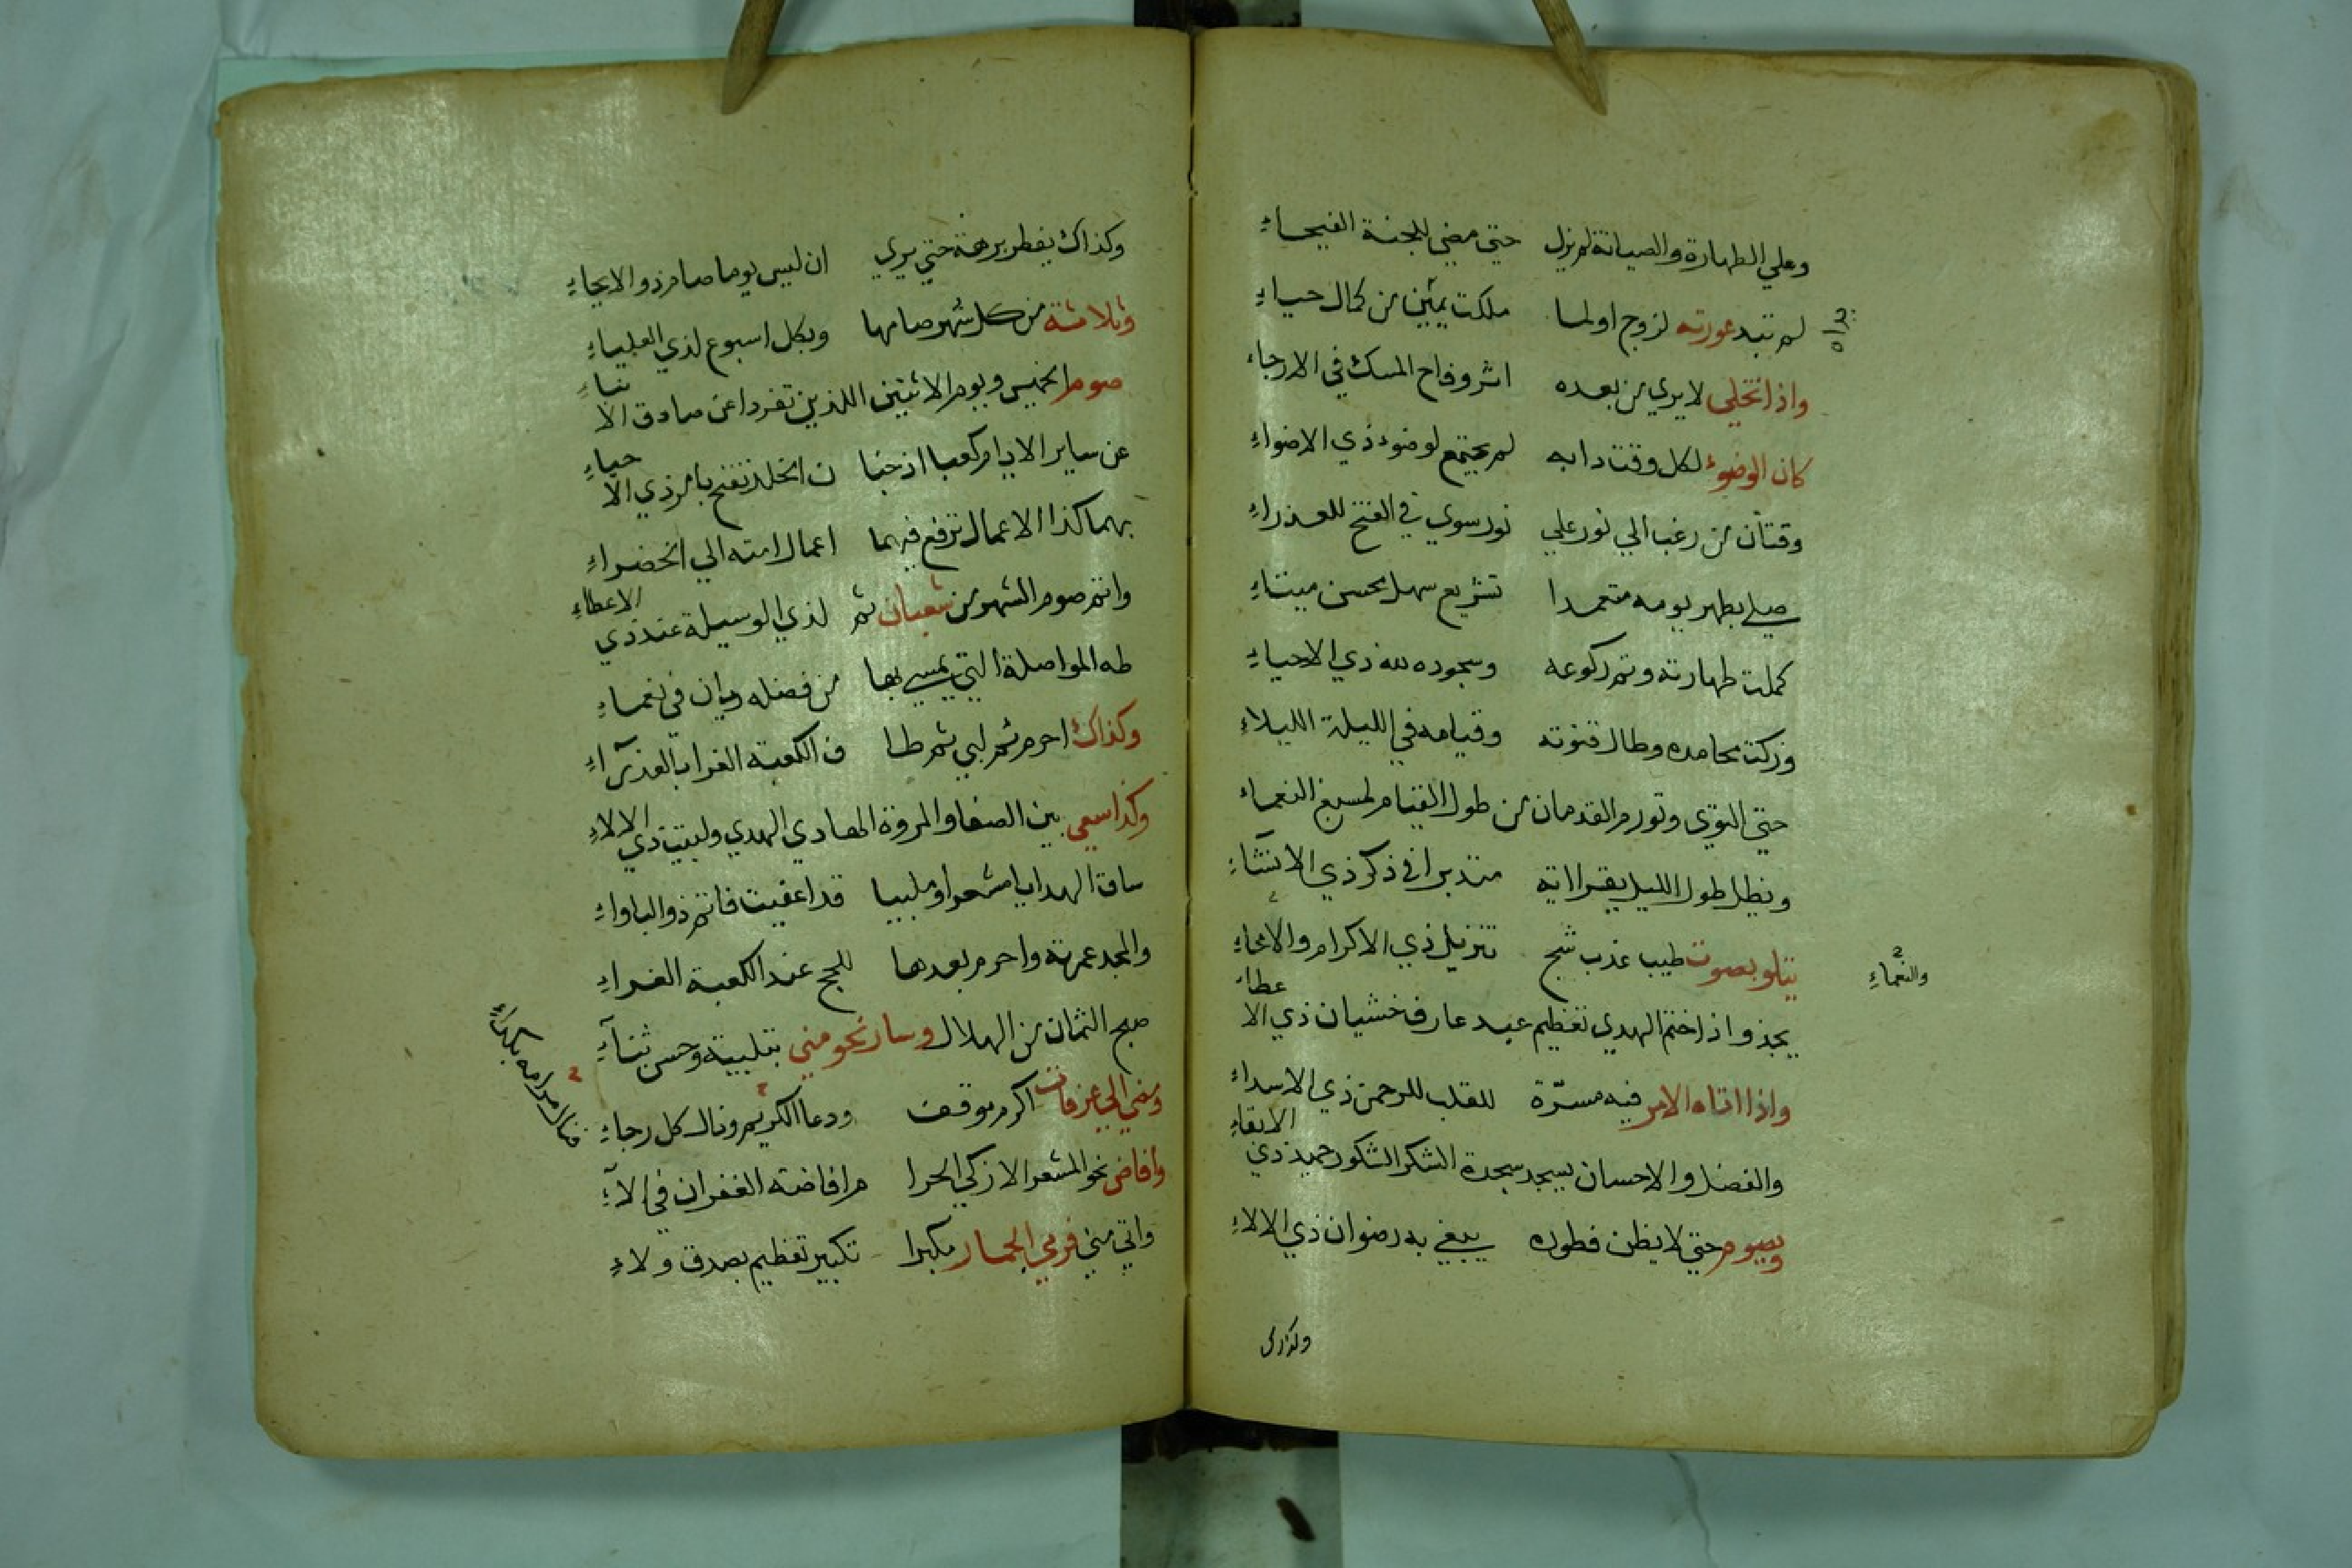 وعلي الطهارة والصيانة لم يزل حتي مضي للجنة الفيحاء
لم تبد عورته لزوج او لما ملكت يمين من كمال حياء
واذا تخلي لا يري من بعده اثر وفاح المسك في الارجاء
كان الوضوء لكل وقت دابه لم يجتمع لوضوء ذي الاضواء
وقتان من رغب الي نور علي نور سوي في الفتح للعذراء
صلي بطهر يومه متعمدا تشريع سهل محسن ميتاء
كملت طهارته وتم ركوعه وسجوده لله ذي الاحياء
وزكت محامده وطال قنوته وقيامه في الليلة الليلاء
حتي التوي وتورم القدمان من طول القيام لمسبغ النعماء
ويظل طول الليل يقرا اته متدبرا في ذكر ذي الانشاء
يتلو بصوت طيب عذب شج تنزيل ذي الاكرام والانحاء
والنعماء
يجذو اذا ختم الهدي تعظيم عبد عارف خشيان ذي الاعطاء
واذا اتاه الامر فيه مسرّة للقلب للرحمن ذي الاسداء
والفضل والاحسان يسجد سجدة الشكر الشكور حميد ذي الابقاء
ويصوم حتي لا يظن فطوره يبغي به رضوان ذي الالاء
وكذاك
وكذاك يفطر برهة حتي يري ان ليس يوما صام ذو الايحاء
وثلاثة من كل شهر صامها وبكل اسبوع لذي العلياء
صوم الخميس ويوم الاثنين اللذين تفردا عن صادق الانباء
عن ساير الايام كعبا اذ جنان الخلد تفتح بامر ذي الاحياء
بهما كذا الاعمال ترفع فيهما اعمال امته الي الخضراء
واتم صوم الشهر من شعبان ثم لذي الوسيلة عند ذي الاعطاء
طه المواصلة التي يمسي بها من فضله ريان في نعماء
وكذاك احرم ثم لبي ثم طاف الكعبة الغرا بالعذراء
وكذا سعي بين الصفا والمروة الهادي الهدي ولبيت ذي الالاء
ساق الهدايا مشعرا وملبيا قد اعقبت فاتم ذو الباواء
والمجد عمرته واحرم بعدها للحج عند الكعبة الغراء
صبح الثمان من الهلال وسار نحو مني بتلبية وحسن ثناء
ومضي الي عرفات اكرم موقف ودعا الكريم ونال كل رجاء
فنال مرامه بكاء
وافاض نحو المشعر الازكي الحرام افاضة الغفران في الاء
واتي مني فرمي الجمار مكبرا تكبير تعظيم بصدق ولاء